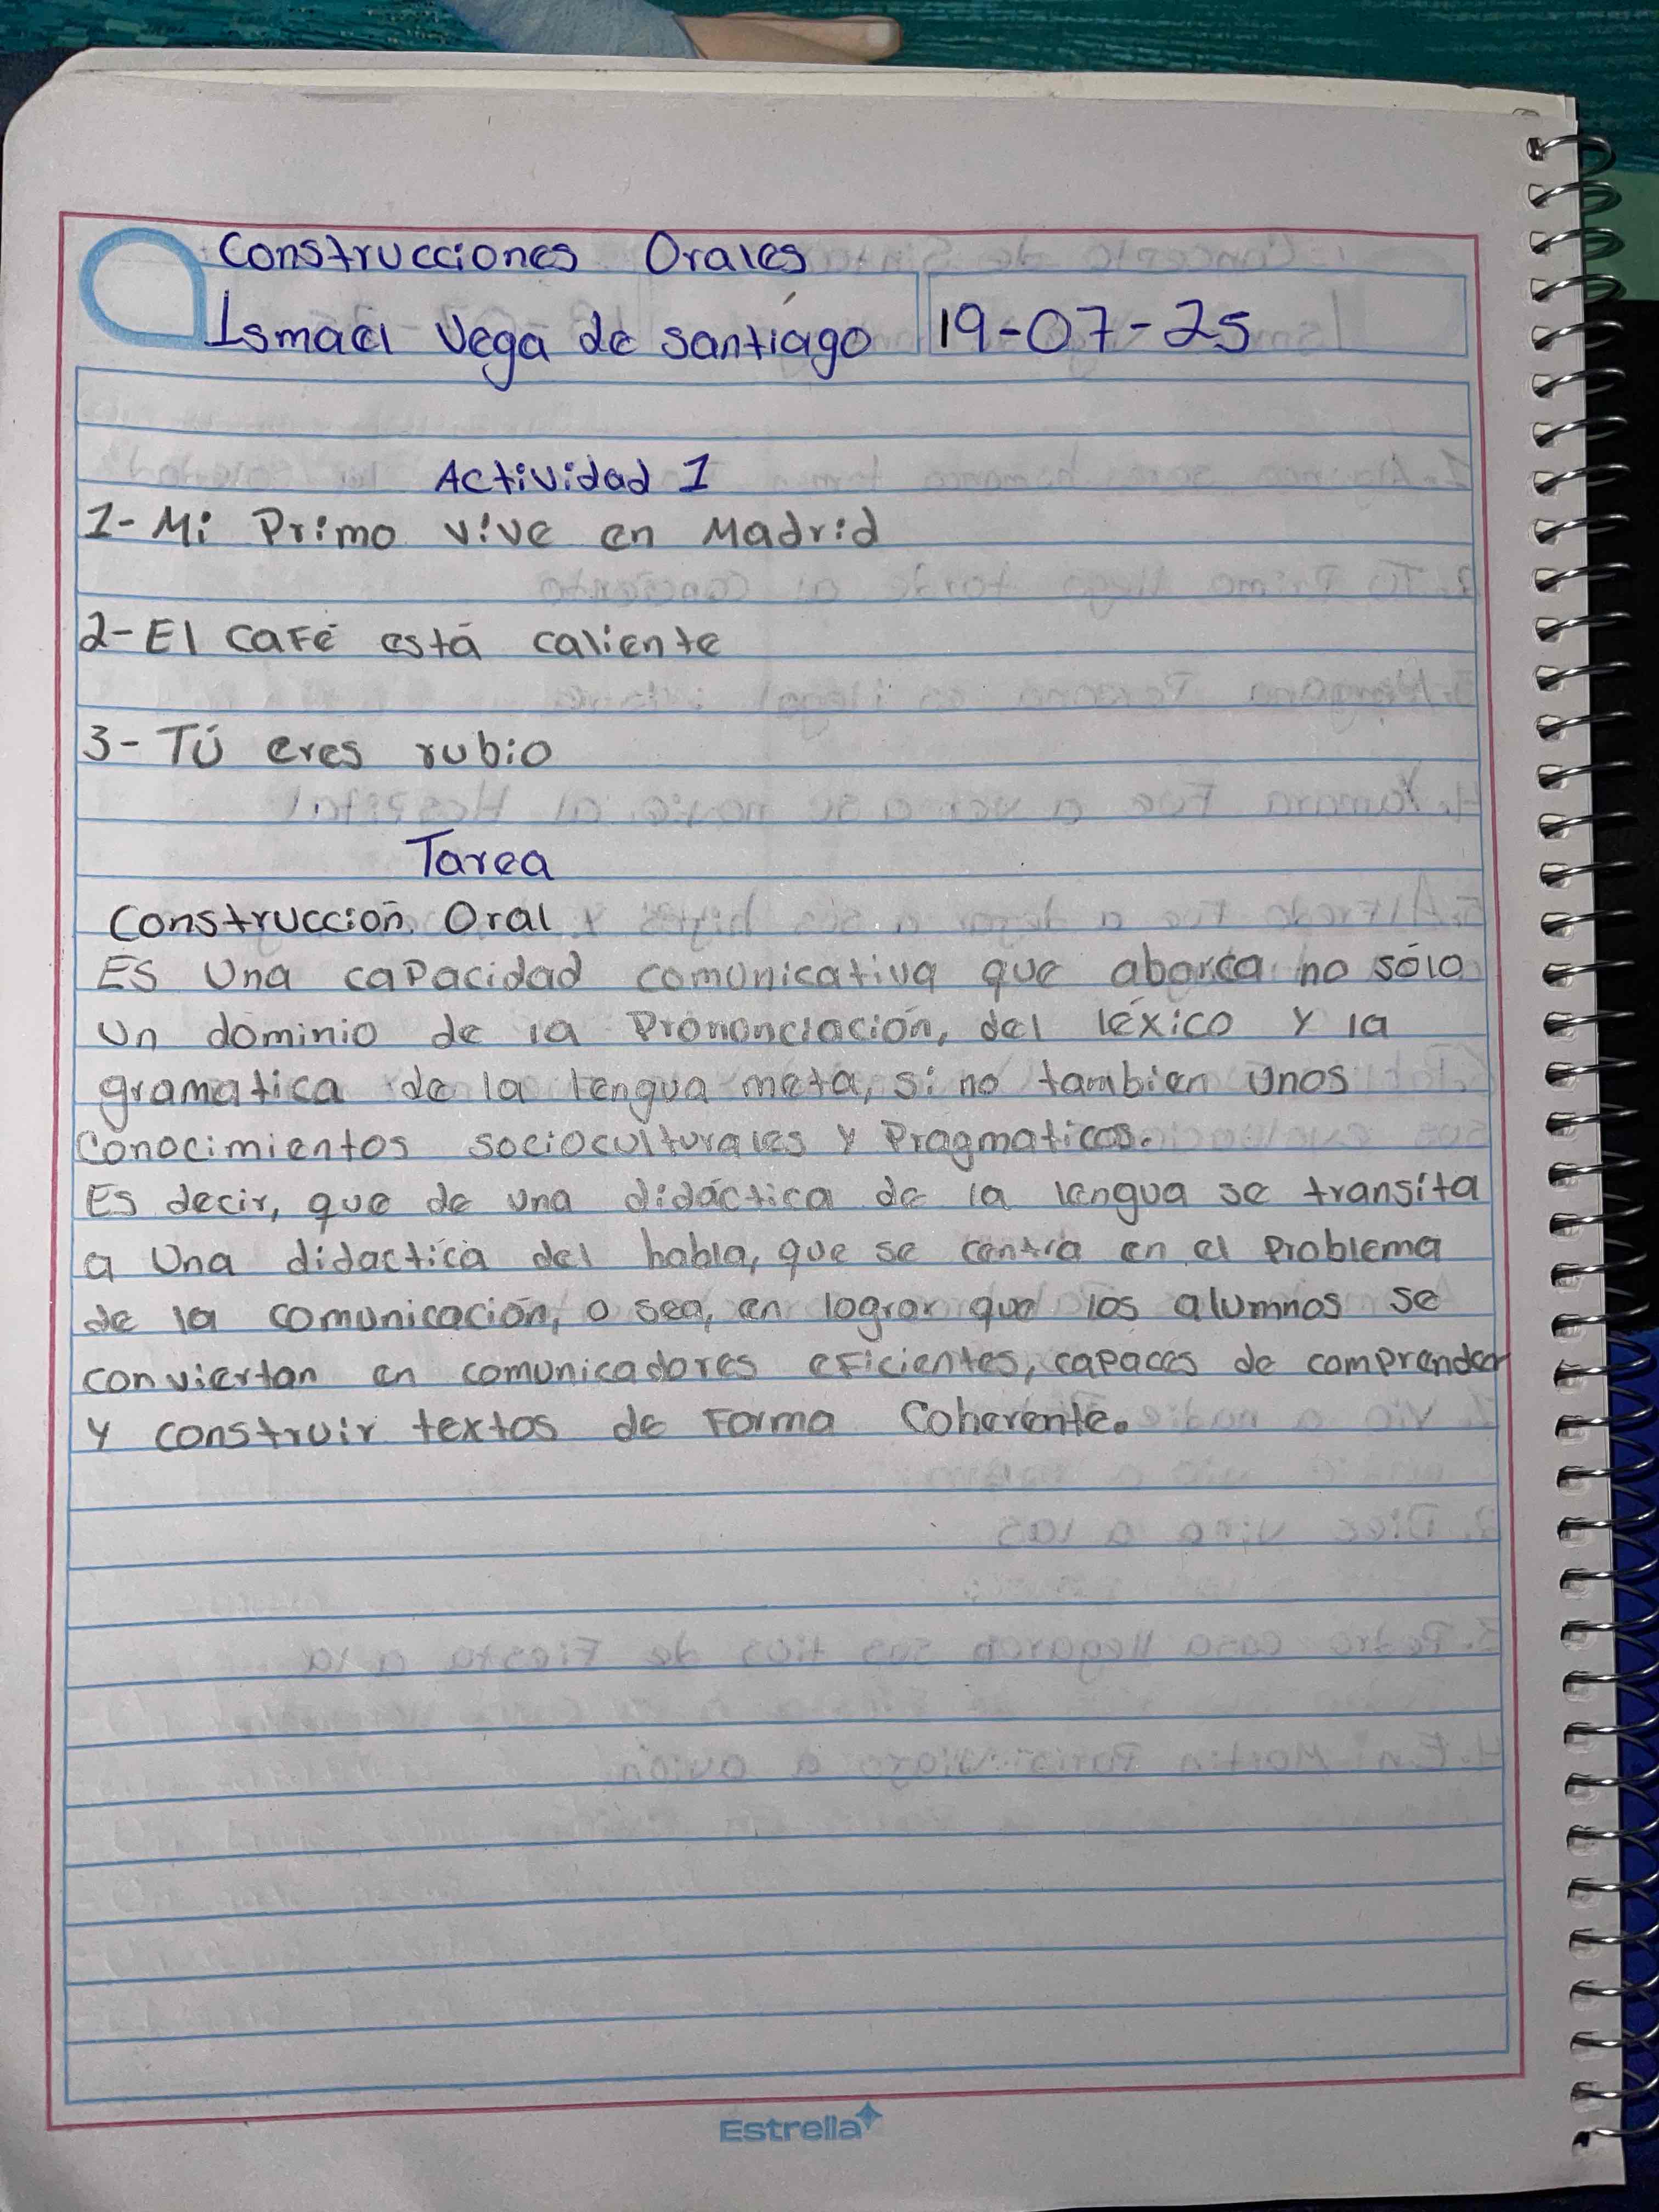 Construcciones Orales
Ismael Vega de Santiago 19-07-25
Actividad 1
1- Mi Primo vive en Madrid
2- El café está caliente
3- Tú eres rubio
Tarea
Construcción Oral
Es una capacidad comunicativa que abarca no sólo
un dominio de la Prononciación, del léxico y la
gramatica de la lengua meta, si no tambien unos
conocimientos socioculturales y Pragmaticos.
Es decir, que de una didáctica de la lengua se transita
a una didactica del habla, que se centra en el problema
de la comunicación, o sea, en lograr que los alumnos se
conviertan en comunicadores eficientes, capaces de comprender
y construir textos de forma coherente.
Estrella